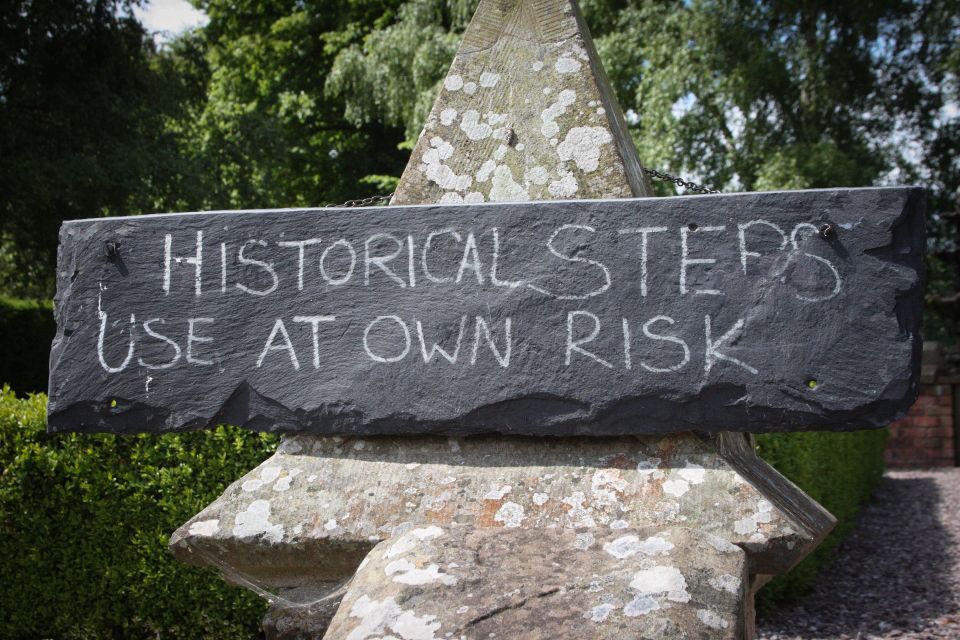 HISTORICAL STEPS
USE AT OWN RISK